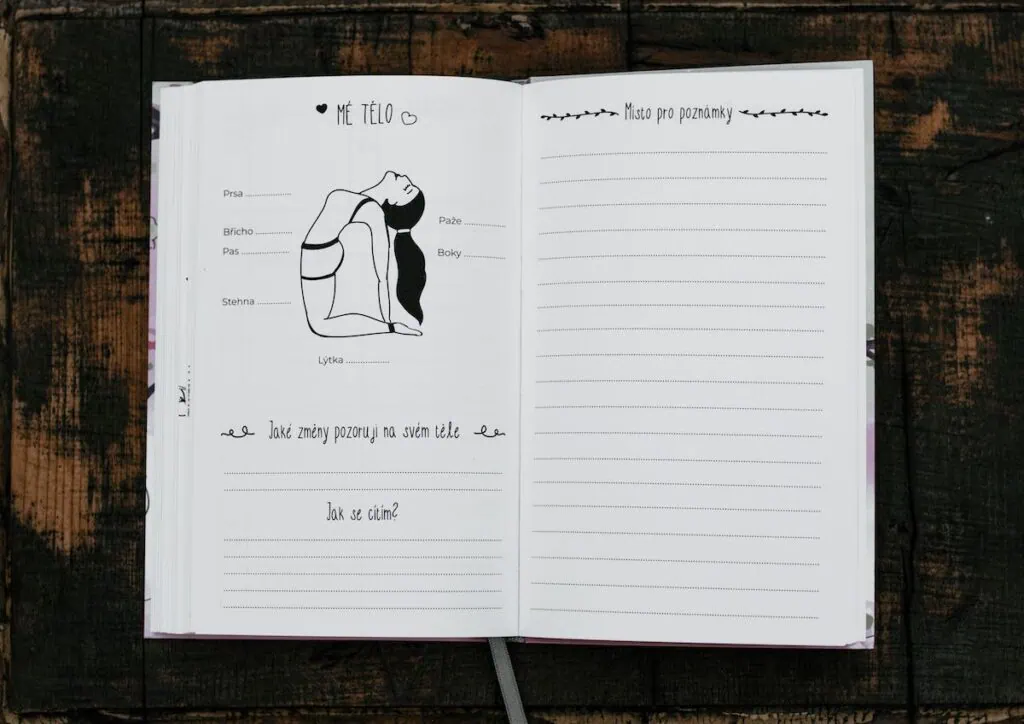 MÉ TĚLO
Prsa ..............
Břicho ...........
Pas ..............
Stehna ..........
Paže ............
Boky ............
Lýtka .............
Jaké změny pozoruji na svém těle
Jak se cítím?
Místo pro poznámky